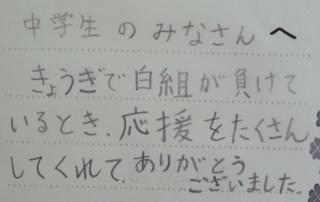 中学生のみなさんへ
きょうぎで白組が負けて
いるとき、応援をたくさん
してくれて、ありがとう
ございました。